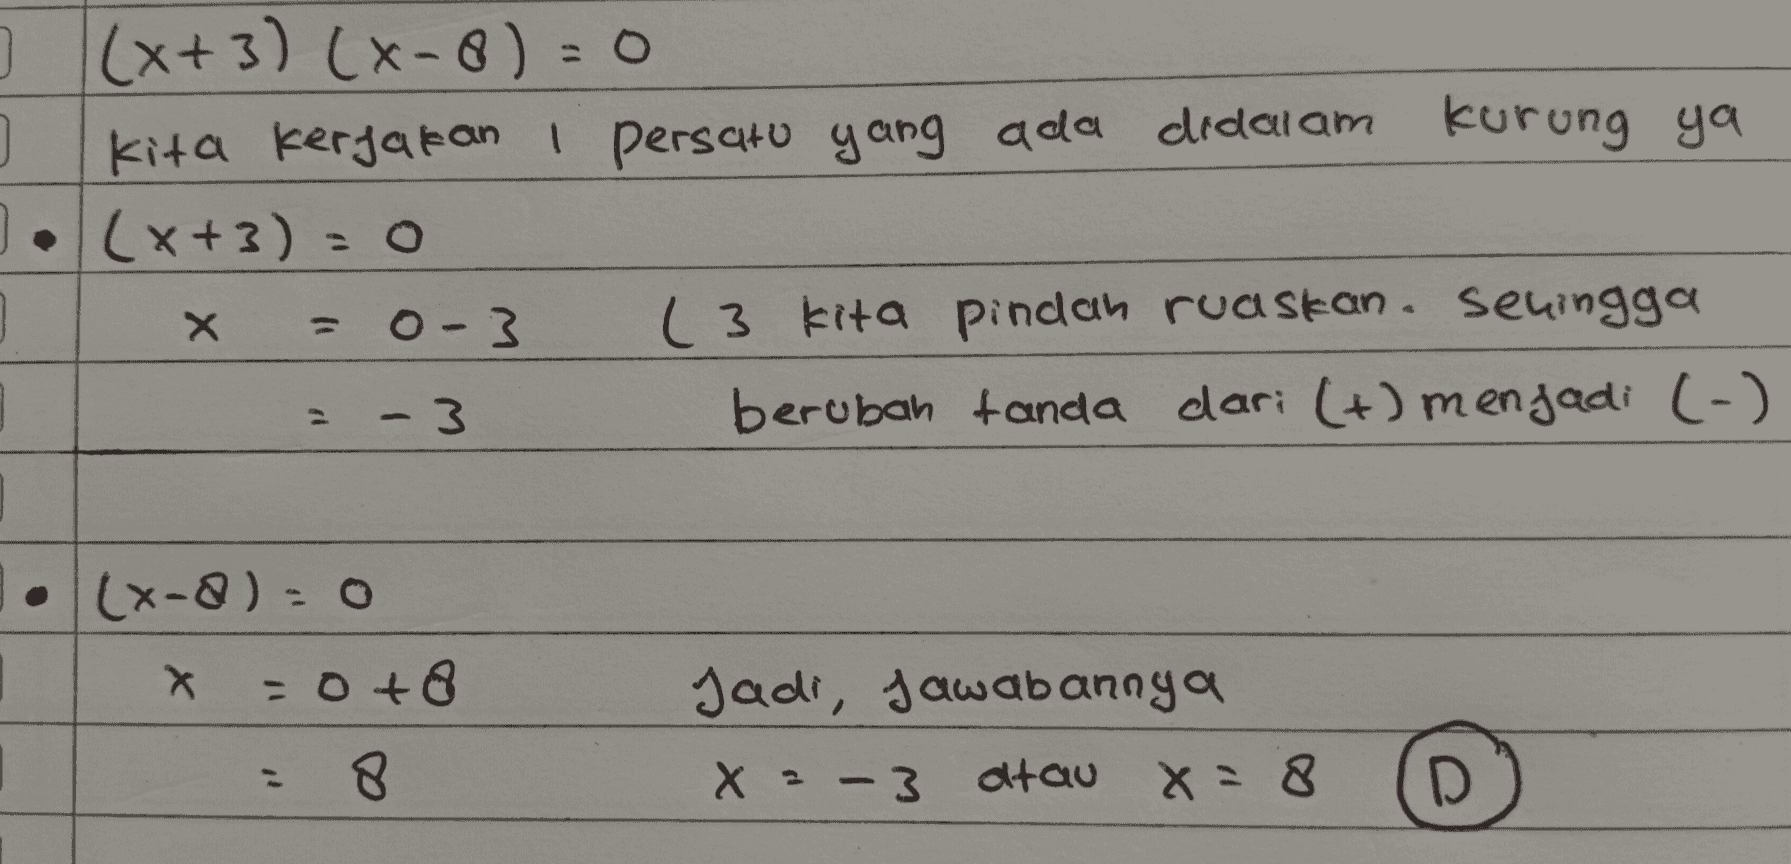 (x+3) (x-8) = 0
kita kerjakan 1 persatu yang ada didalam kurung ya
• (x+3) = 0
x = 0-3 ( 3 kita pindah ruaskan. Sehingga
= -3 berubah tanda dari (+) menjadi (-)
• (x-8) = 0
x = 0+8 Jadi, jawabannya
= 8 x = -3 atau x = 8 D